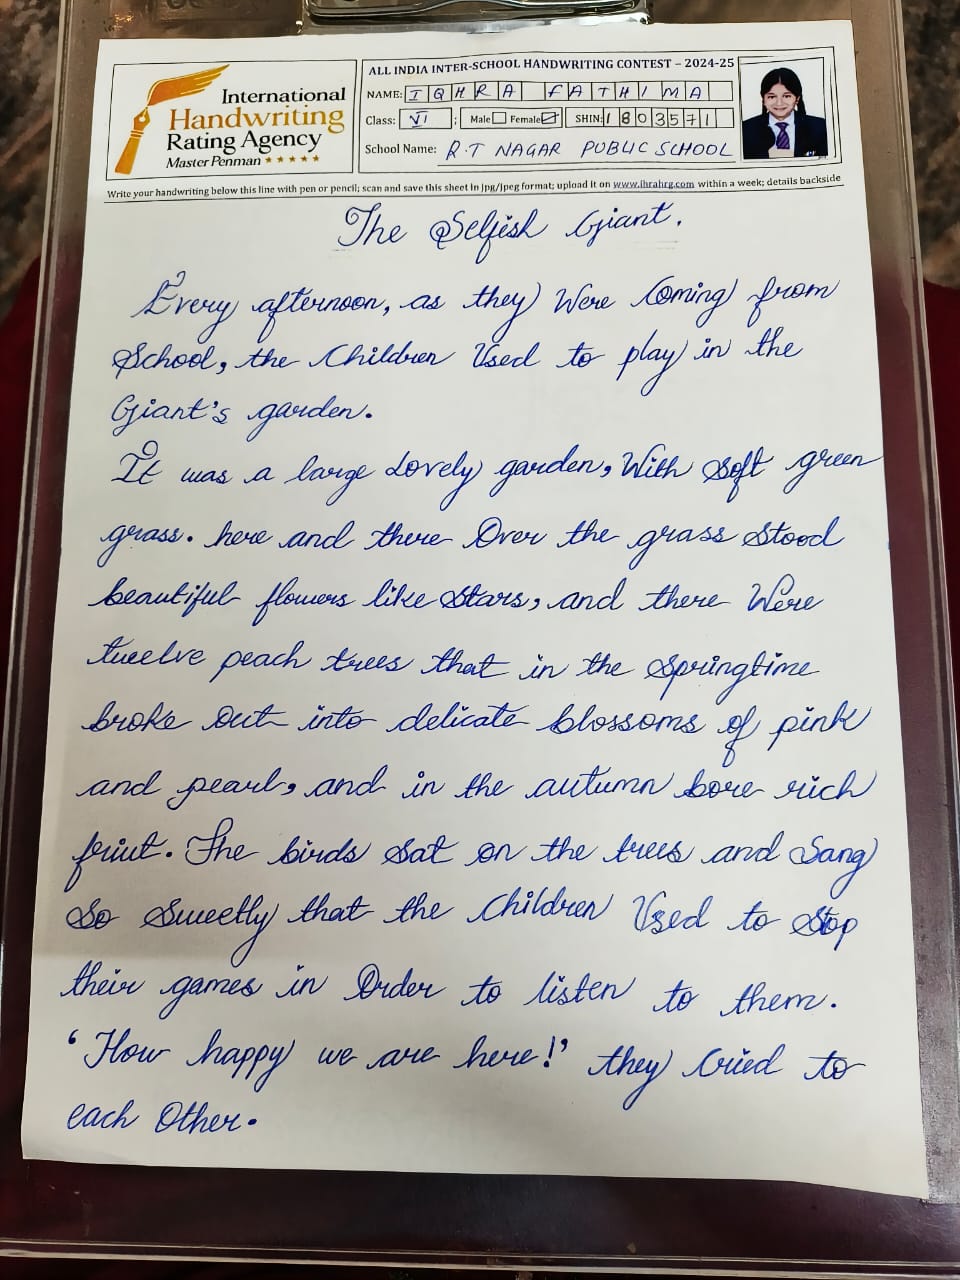 International
Handwriting
Rating Agency
Master Penman ★★★★★
ALL INDIA INTER-SCHOOL HANDWRITING CONTEST – 2024-25
NAME: IQHRA FATHIMA
Class: VI ; Male Female SHIN: 1803571
School Name: R.T NAGAR PUBLIC SCHOOL
Write your handwriting below this line with pen or pencil; scan and save this sheet in jpg/jpeg format; upload it on www.ihrahrg.com within a week; details backside
The Selfish Giant.
Every afternoon, as they Were Coming from
School, the Children Used to play in the
Giant's garden.
It was a large Lovely garden, With Soft green
grass. here and there Over the grass Stood
beautiful flowers like Stars, and there Were
twelve peach trees that in the Springtime
broke out into delicate blossoms of pink
and pearl, and in the autumn bore rich
friut. The birds Sat on the trees and Sang
So Sweetly that the Children Used to Stop
their games in Order to listen to them.
'How happy we are here!' they Cried to
each Other.